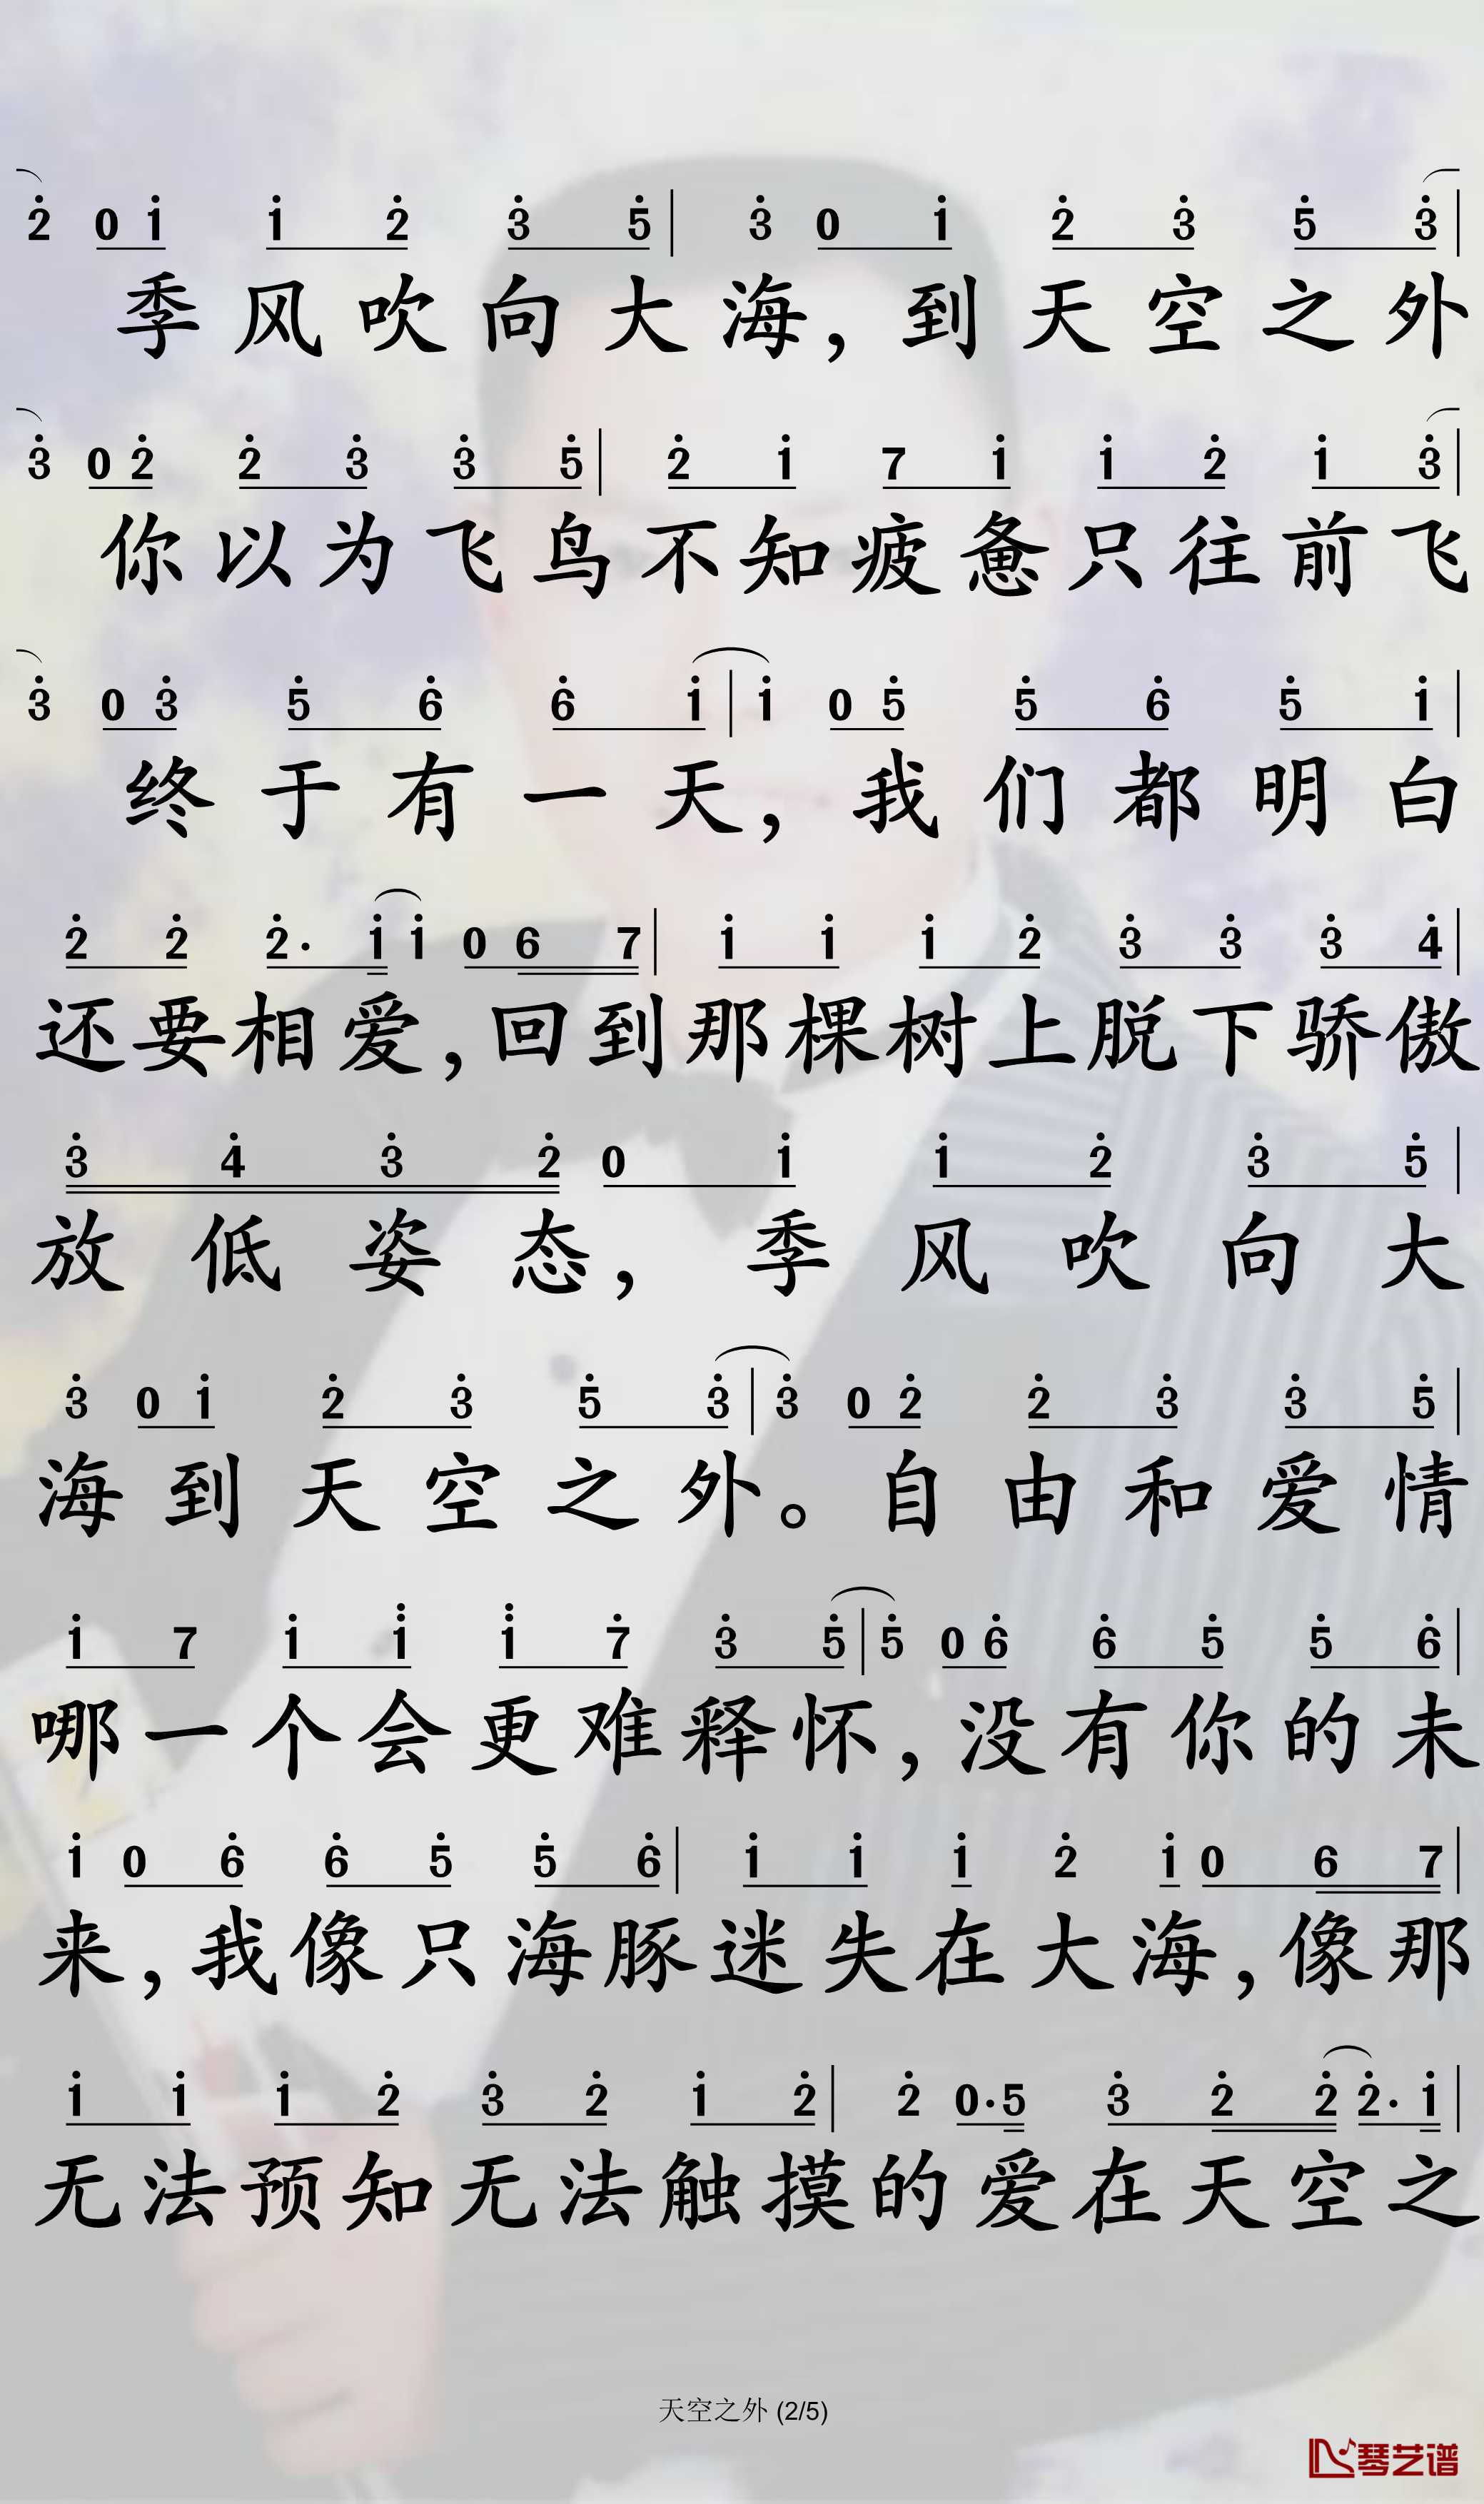 2 0 1 1 2 3 5 | 3 0 1 2 3 5 3 |
季风吹向大海，到天空之外
3 0 2 2 3 3 5 | 2 1 7 1 1 2 1 3 |
你以为飞鸟不知疲惫只往前飞
3 0 3 5 6 6 1 | 1 0 5 5 6 5 1 |
终于有一天，我们都明白
2 2 2· 1 1 0 6 7 | 1 1 1 2 3 3 3 4 |
还要相爱，回到那棵树上脱下骄傲
3 4 3 2 0 1 1 2 3 5 |
放低姿态，季风吹向大
3 0 1 2 3 5 3 | 3 0 2 2 3 3 5 |
海到天空之外。自由和爱情
1 7 1 1 1 7 3 5 | 5 0 6 6 5 5 6 |
哪一个会更难释怀，没有你的未
1 0 6 6 5 5 6 | 1 1 1 2 1 0 6 7 |
来，我像只海豚迷失在大海，像那
1 1 1 2 3 2 1 2 | 2 0·5 3 2 2 2· 1 |
无法预知无法触摸的爱在天空之
天空之外 (2/5)
琴艺谱